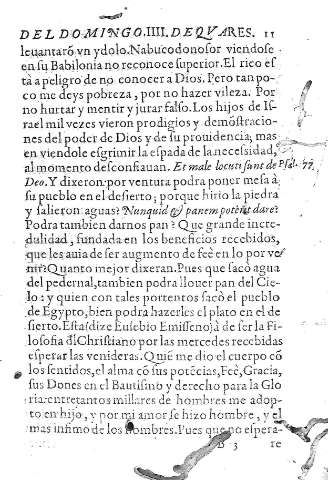 DEL DOMINGO. IIII. DE QVARES. 11
leuantarõ vn ydolo. Nabucodonosor viendose
en su Babilonia no reconoce superior. El rico es
tà a peligro de no conocer a Dios. Pero tan po-
co me deys pobreza, por no hazer vileza. Por
no hurtar y mentir y jurar falso. Los hijos de Is-
rael mil vezes vieron prodigios y demõstracio-
nes del poder de Dios y de su prouidencia, mas
en viendole esgrimir la espada de la necesidad,
al momento desconfiauan. Et male locuti sunt de Psal. 77.
Deo. Y dixeron: por ventura podra poner mesa à
su pueblo en el desierto, porque hirio la piedra
y salieron aguas? Nunquid & panem poterit dare?
Podra tambien darnos pan? Que grande incre-
dulidad, fundada en los beneficios recebidos,
que les auia de ser augmento de feè en lo por ve
nir? Quanto mejor dixeran. Pues que sacò agua
del pedernal, tambien podra llouer pan del Cie-
lo: y quien con tales portentos sacò el pueblo
de Egypto, bien podra hazerles el plato en el de
sierto. Esta dize Eusebio Emissenojà de ser la Fi-
losofia dl Christiano por las mercedes recebidas
esperar las venideras. Quiẽ me dio el cuerpo cõ
los sentidos, el alma cõ sus potẽcias, Feè, Gracia,
sus Dones en el Bautismo y derecho para la Glo
ria: entre tantos millares de hombres me adop-
to en hijo, y por mi amor se hizo hombre, y el
mas infimo de los hombres. Pues que no espera-
B 3 re